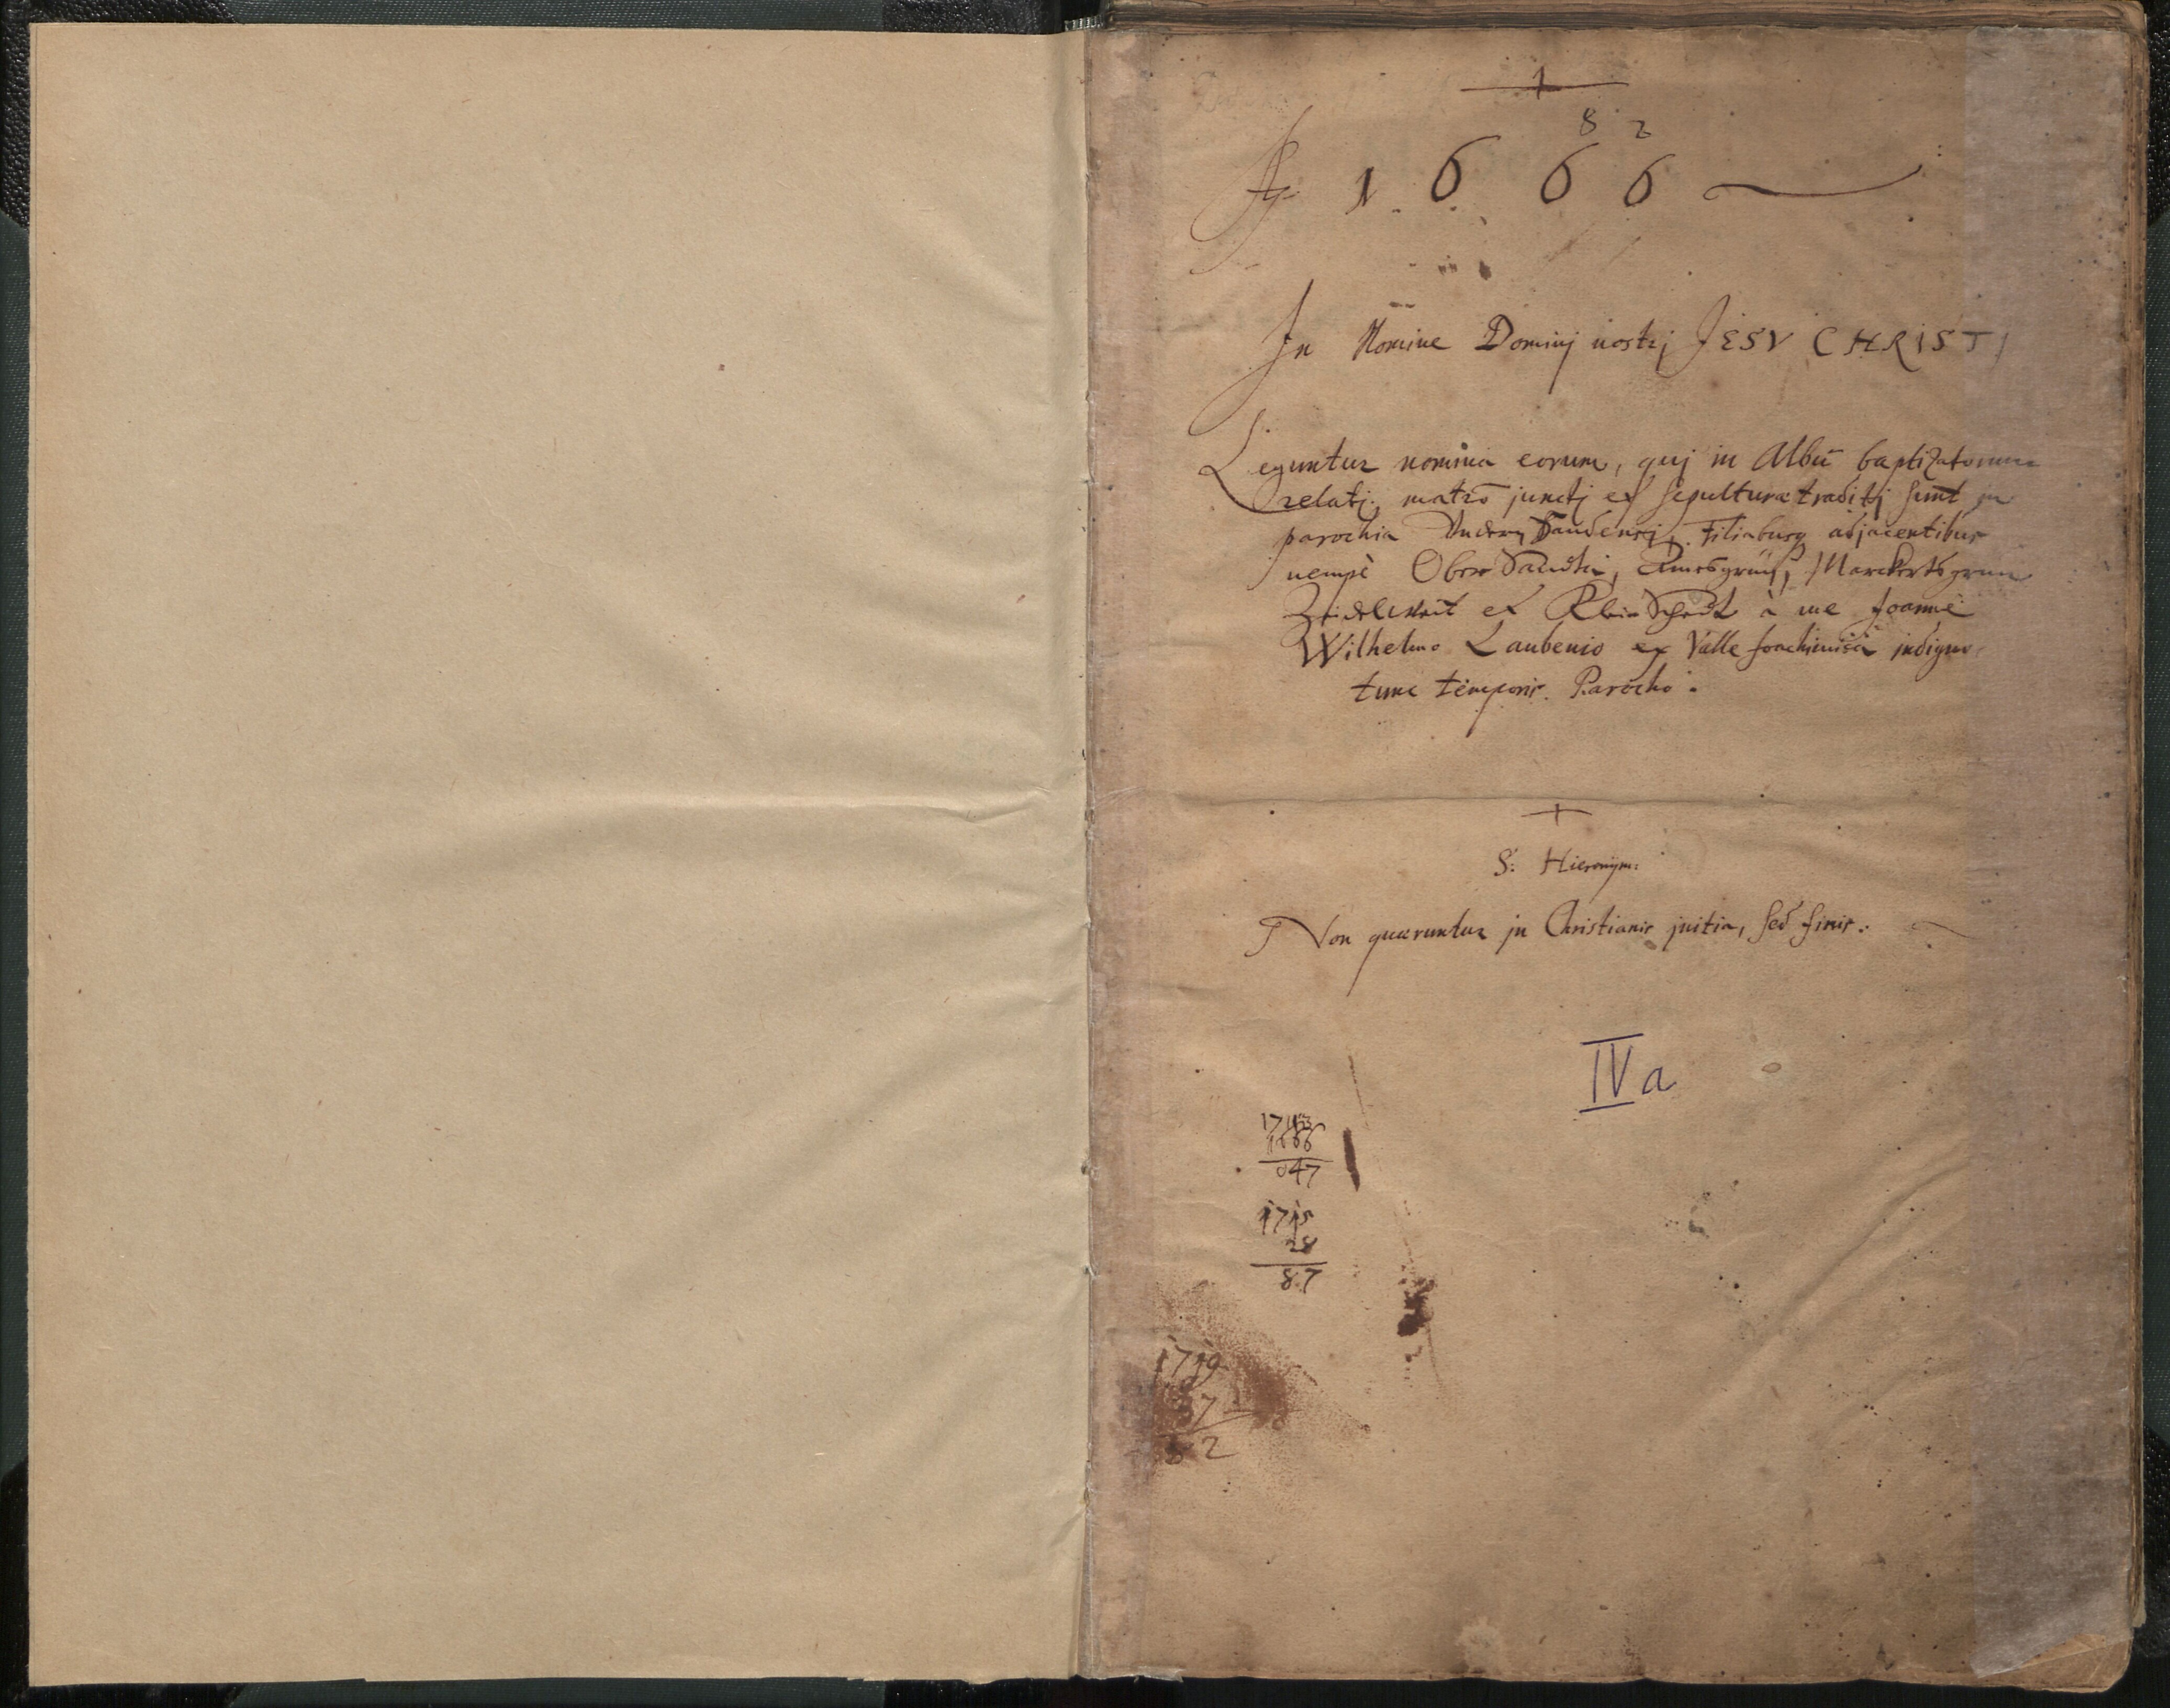 8 2
A 1 6 6 6
In Nomine Dominj nostrj JESV CHRISTJ
Leguntur nomina eorum, quj in Albū baptizatorum
relatj, matrō junctj et sepulturæ traditj sunt in
parochia Undern Sandensj, Filiabusq adjacentibus
nempè Ober Sandta, Amesgrün, Marckertsgrun
Zeidelweit et Klein Schedt à me Joanne
Wilhelmo Laubenio ex Valle Joachimica indigno
tunc temporis Parocho.
S: Hieronym:
Non quæruntur jn Christianis jnitia, sed finis.
IV a
1713
1666
047
1715
28
87
1719
87
2